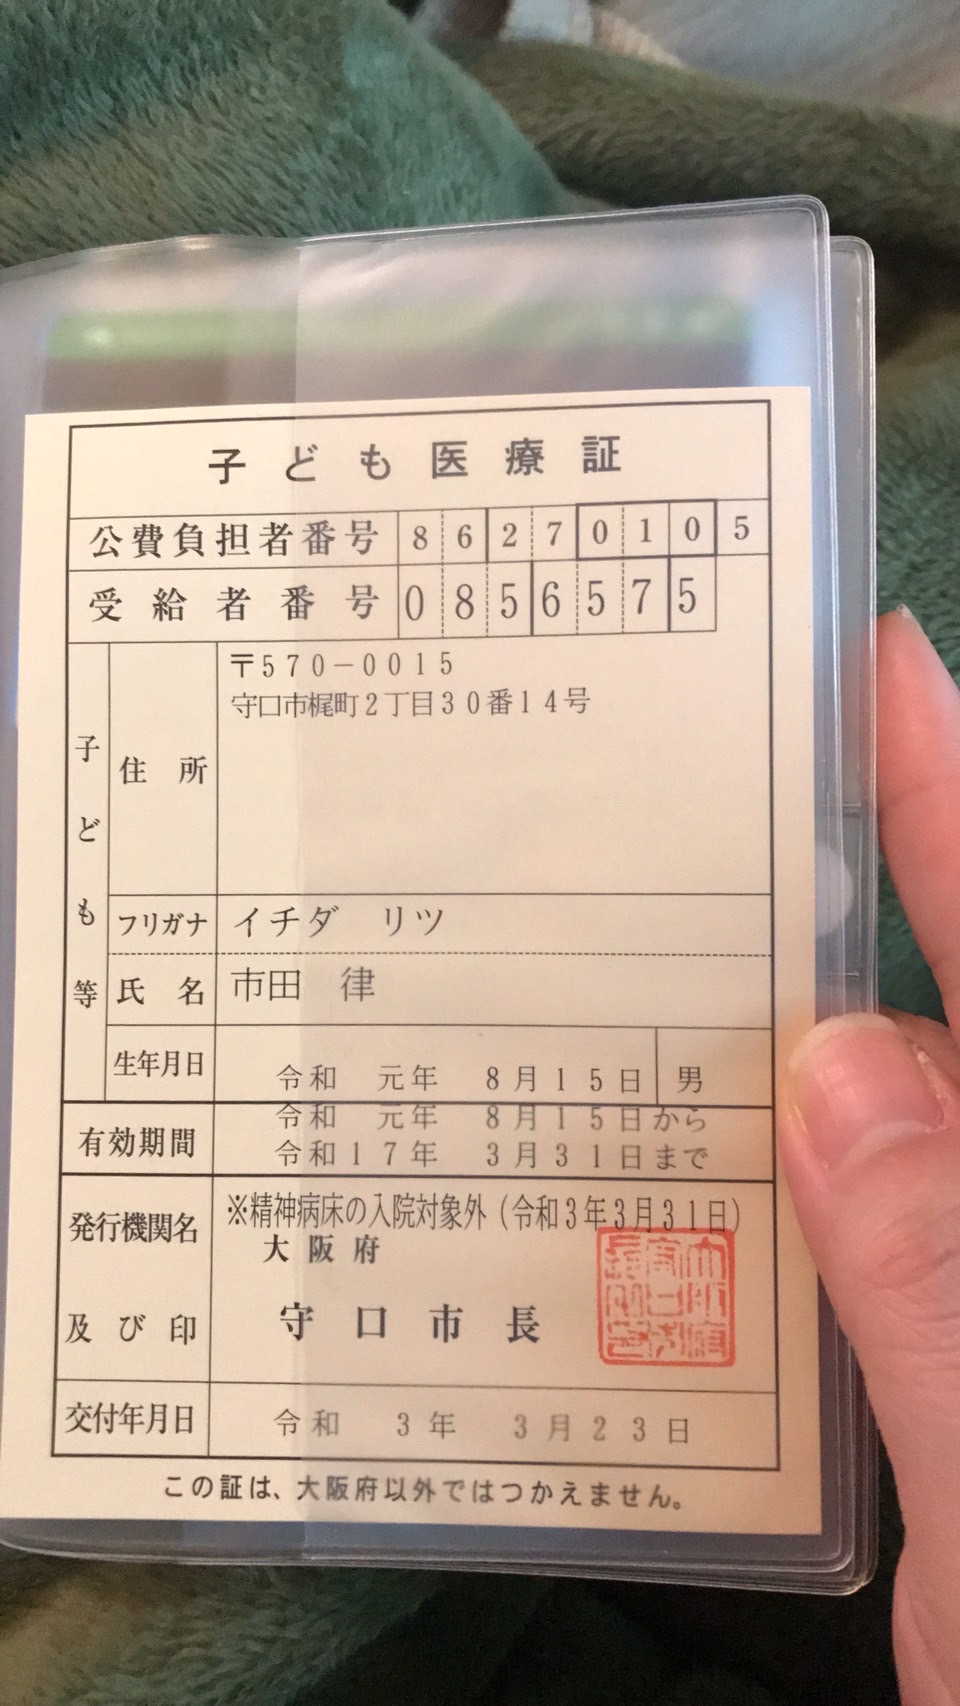 子ども医療証
公費負担者番号 86270105
受給者番号 0856575
子ども等
住所
〒570－0015
守口市梶町2丁目30番14号
フリガナ イチダ リツ
氏名 市田 律
生年月日 令和 元年 8月15日 男
有効期間
令和 元年 8月15日から
令和17年 3月31日まで
発行機関名及び印
※精神病床の入院対象外（令和3年3月31日）
大阪府
守口市長
交付年月日 令和 3年 3月23日
この証は、大阪府以外ではつかえません。